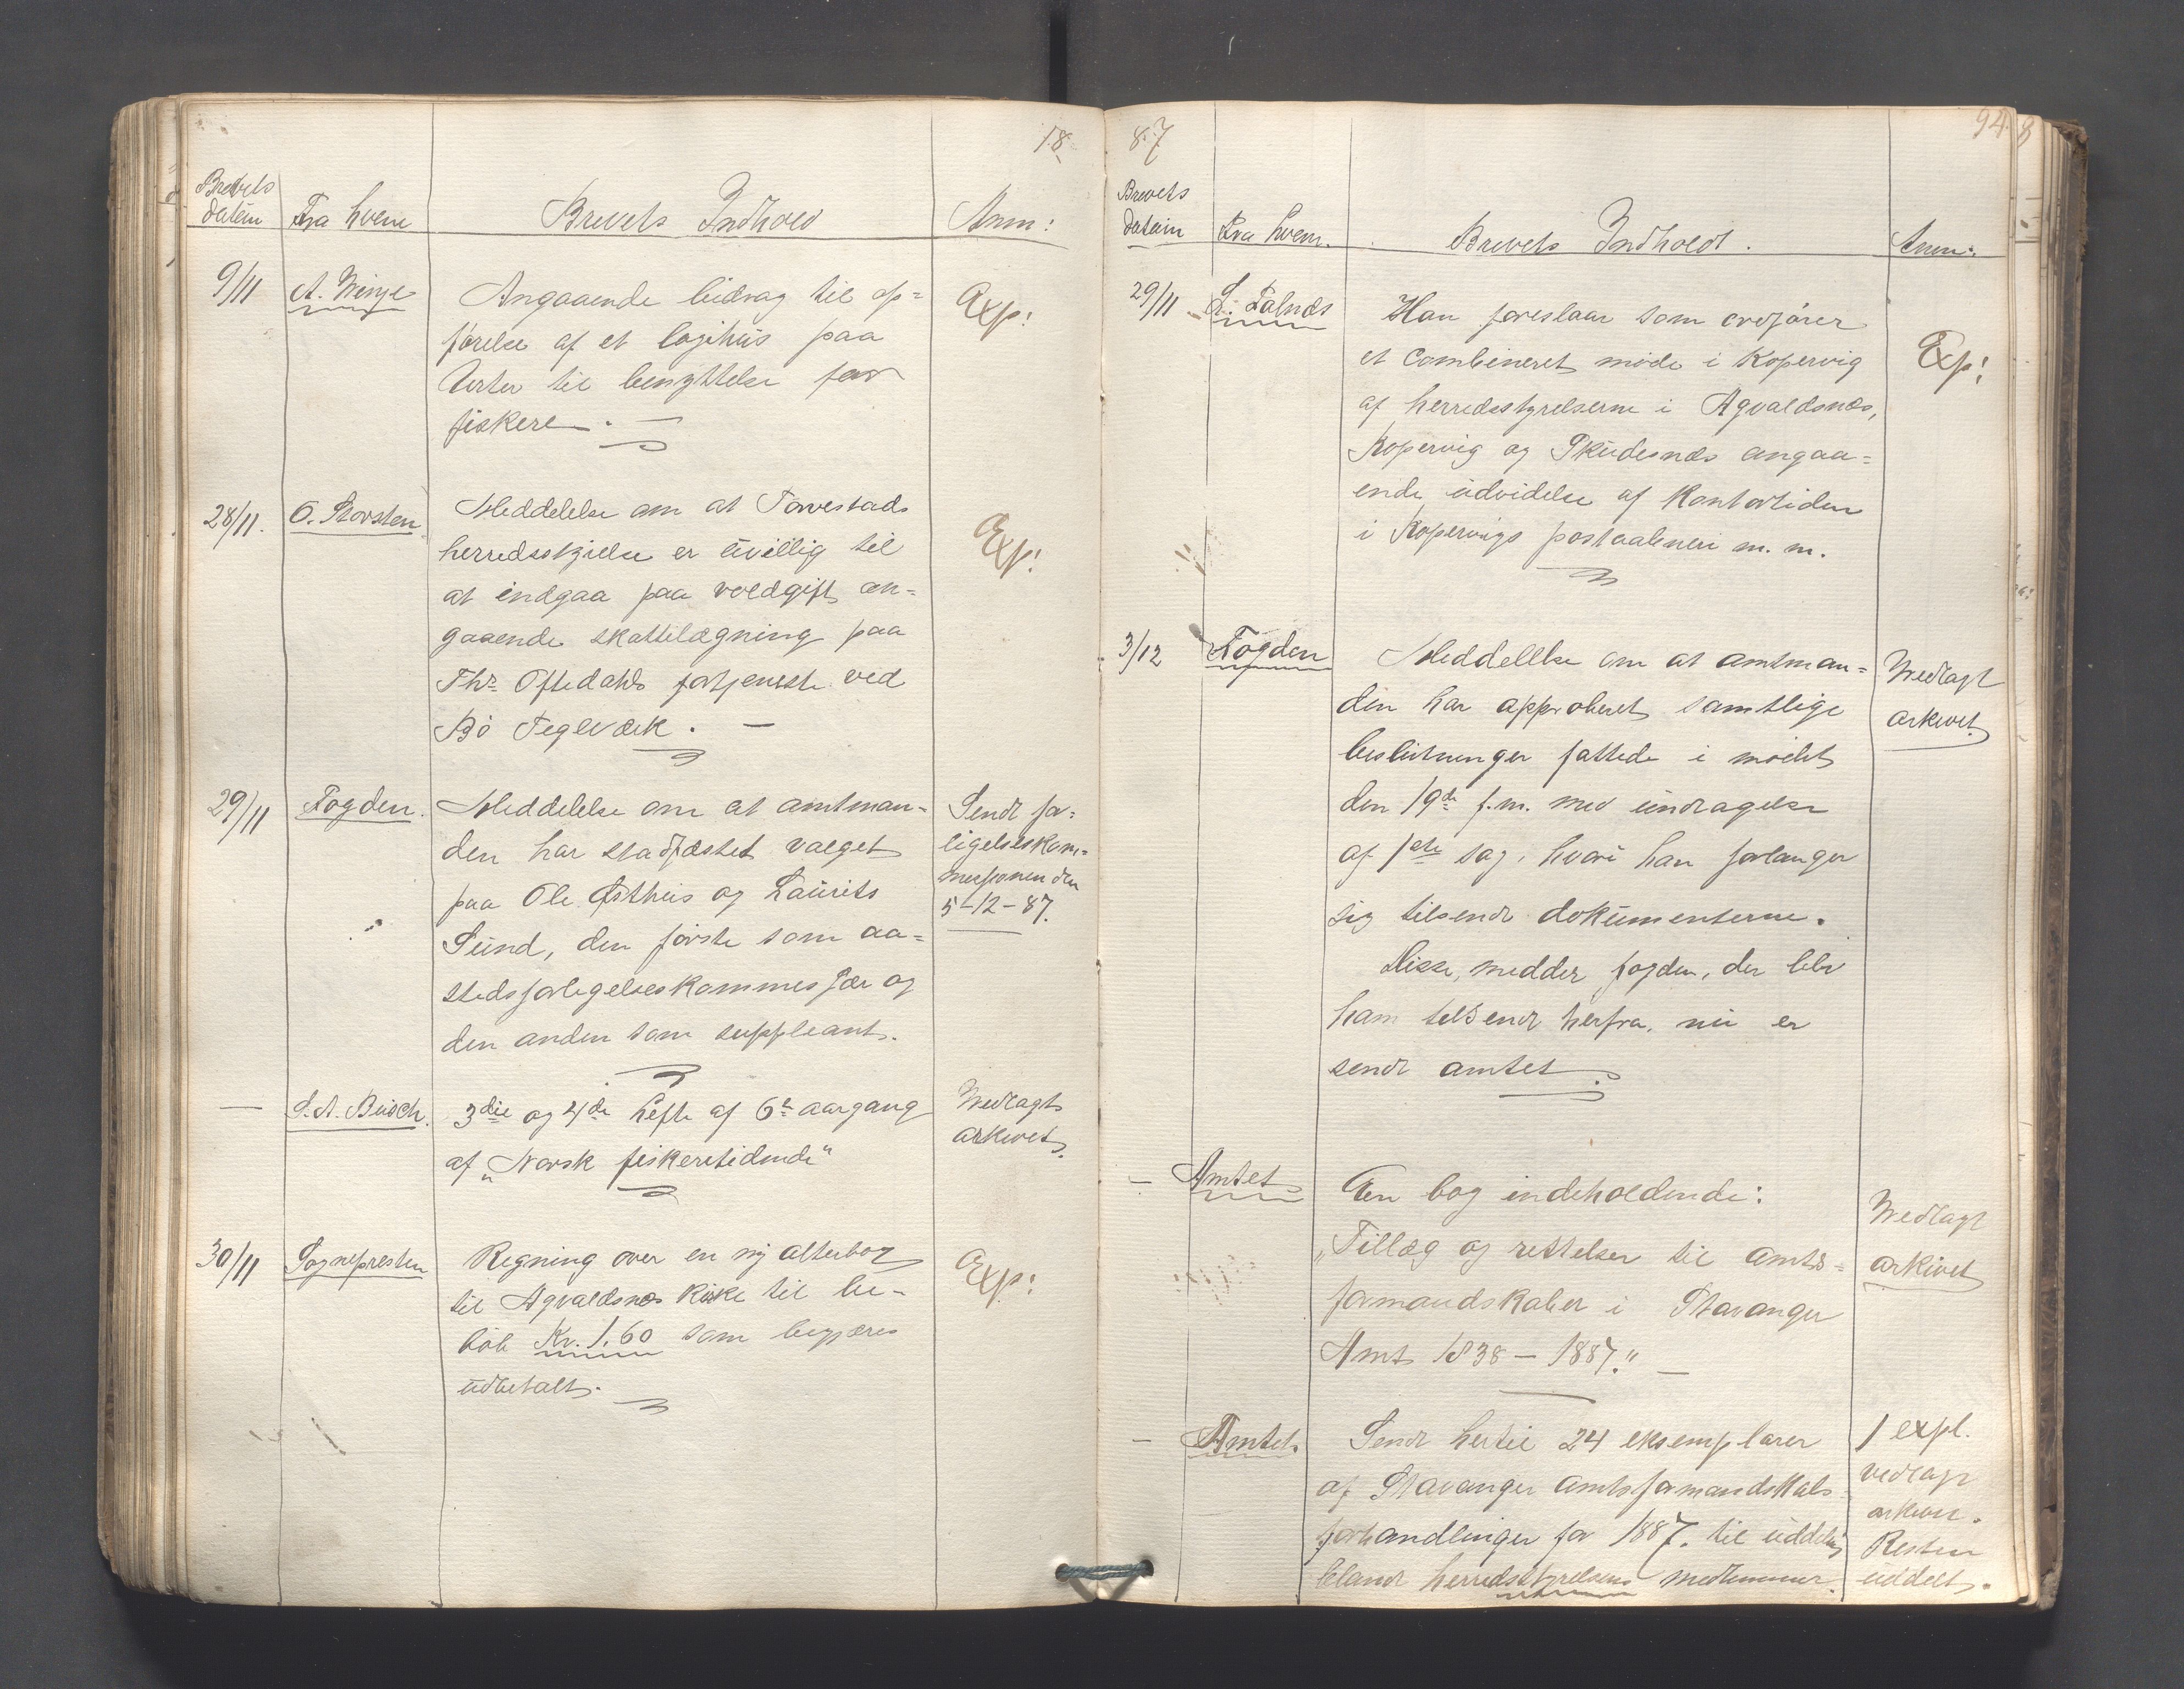 18
Brevets
datum Fra hvem Brevets Indhold Anm:
9/11 A. Winge Angaaende bidrag til op=
førelse af et logihus paa
Urter til benyttelse for
fiskere. —
Exp!
28/11. O. Storsten Meddelelse om at Torvestads
herredsstyrelse er uvillig til
at indgaa paa voldgift an=
gaaende skattelægning paa
Ths Oftedahls fortjeneste ved
Bø Teglværk. —
Exp!
29/11 Fogden. Meddelelse om at amtman=
den har stadfæstet valget
paa Ole Østhus og Laurits
Sund, den første som aa=
stedsforligelseskommesjær og
den anden som suppleant.
Sendt for=
ligelseskom=
mesjonen den
5-12-87.
— S. A. Buch. 3die og 4de hefte af 6te aargang
af „Norsk fiskeretidende“
Vedlagt
arkivet.
30/11 Sognepresten Regning over en ny alterbog
til Agvaldsnes kirke til be-
løb Kr. 1.60 som begjæres
udbetalt.
Exp!
87
94
Brevets
datum Fra hvem. Brevets Indholdt. Anm:
29/11 L. Falnes Han foreslaar som ordfører
et combineret møde i Kopervig
af herredsstyrelserne i Agvaldsnes,
Kopervig og Skudesnes angaa=
ende udvidelse af kontortiden
i Kopervigs postaabneri m. m.
Exp!
3/12 Fogden Meddellse om at amtman=
den har approberet samtlige
beslutninger fattede i mødet
den 19de f. m. med undtagelse
af 1ste sag, hvori han forlanger
sig tilsendt dokumenterne.
Disse, medder fogden, der blev
ham tilsendt herfra, nu er
sendt amtet.
Vedlagt
arkivet.
— Amtet En bog indeholdende:
„Tillæg og rettelser til amts=
formandskaber i Stavanger
Amt 1838 — 1887.“ —
Vedlagt
arkivet
— Amtet. Sendt hertil 24 eksemplarer
af Stavanger amtsformandskabs
forhandlinger for 1887. til uddeling
blandt herredsstyrelsens medlemmer.
1 expl.
vedlagt
arkivet.
Resten
uddelt.